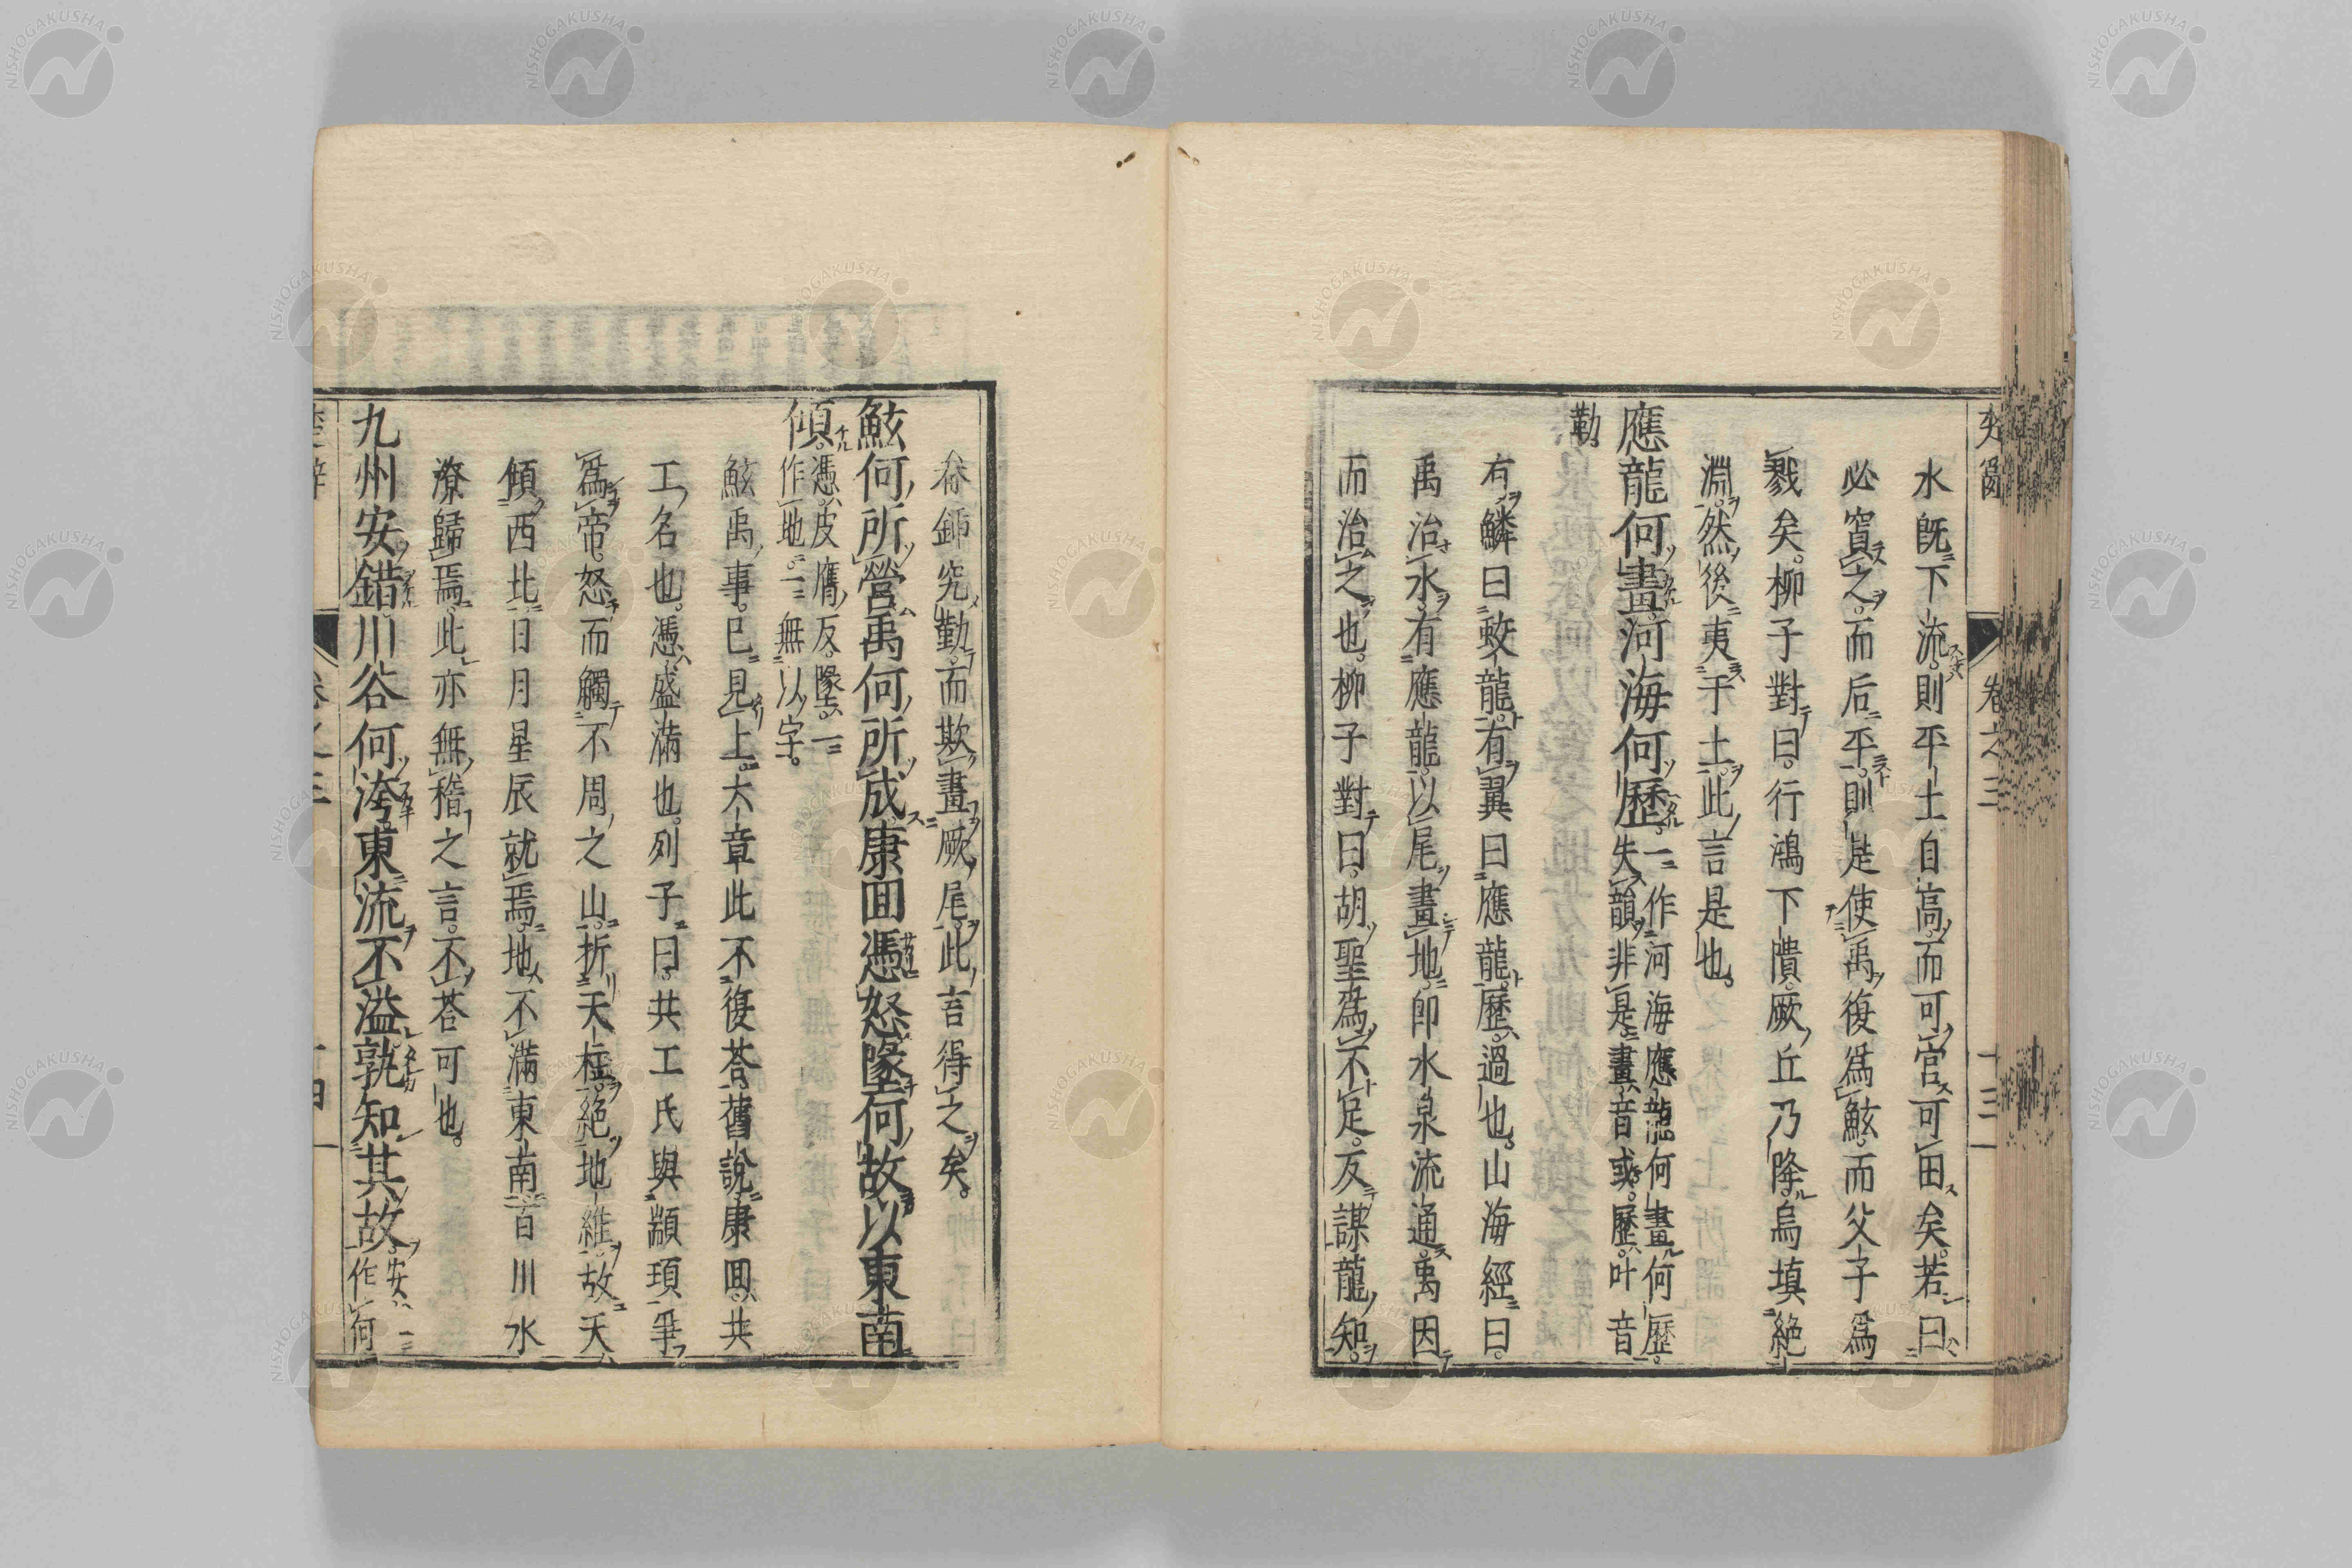 水既下流則平土自高而可官可田矣若曰
必窴之而后平則是使禹復爲鮌而父子爲
戮矣柳子對曰行鴻下隤厥丘乃降烏填絶
淵然後夷于土此言是也
應龍何畫河海何歷一作河海應龍何畫何歷失韻非是畫音或歷叶音
勒
有鱗曰蛟龍有翼曰應龍歷過也山海經曰
禹治水有應龍以尾畫地即水泉流通禹因
而治之也柳子對曰胡聖爲不足反謀龍知
畚鍤究勤而欺畫厥尾此言得之矣
鮌何所營禹何所成康回憑怒墬何故以東南
傾憑皮膺反墬一作地一無以字
鮌禹事已見上大章此不復荅舊說康回共
工名也憑盛滿也列子曰共工氏與顓頊爭
爲帝怒而觸不周之山折天柱絶地維故天
傾西北日月星辰就焉地不滿東南百川水
潦歸焉此亦無稽之言不荅可也
九州安錯川谷何洿東流不溢孰知其故安一作何
卷之三
十三
NISHOGAKUSHA